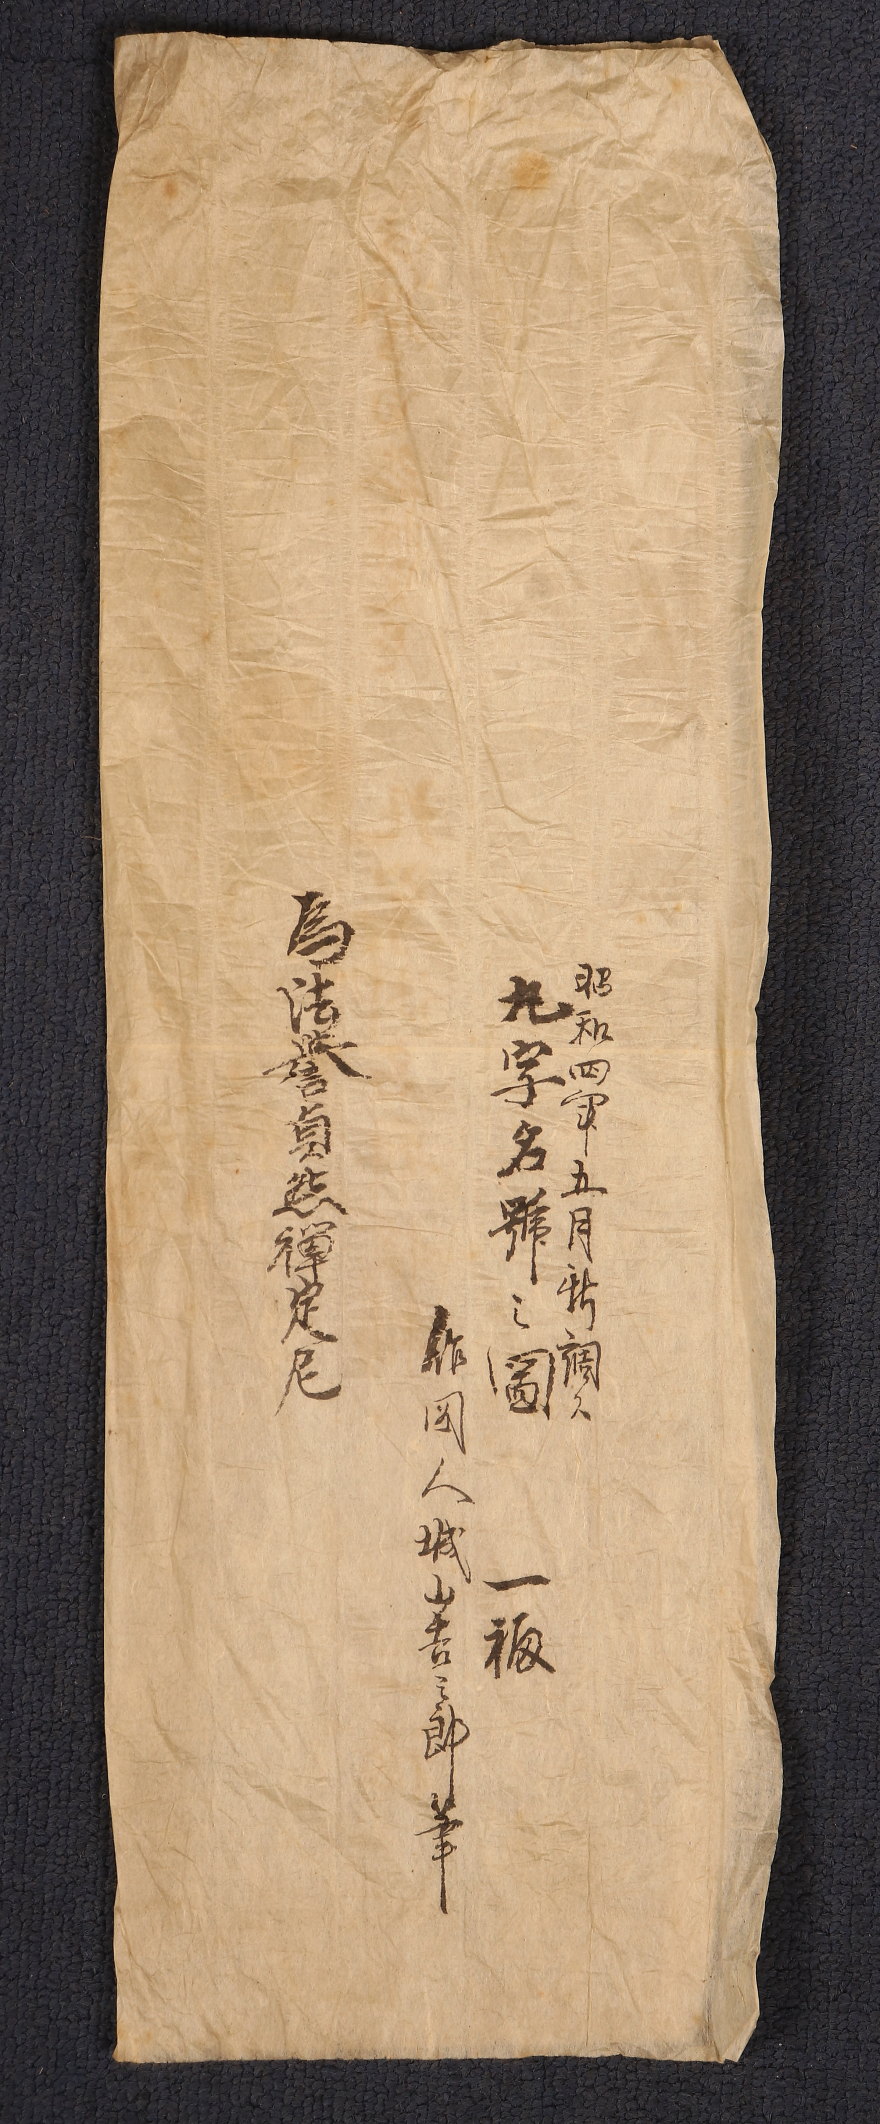 昭和四年五月新調ス
九字名號之圖　一幅
鯖岡人城山善三郎筆
為法譽貞然禅定尼